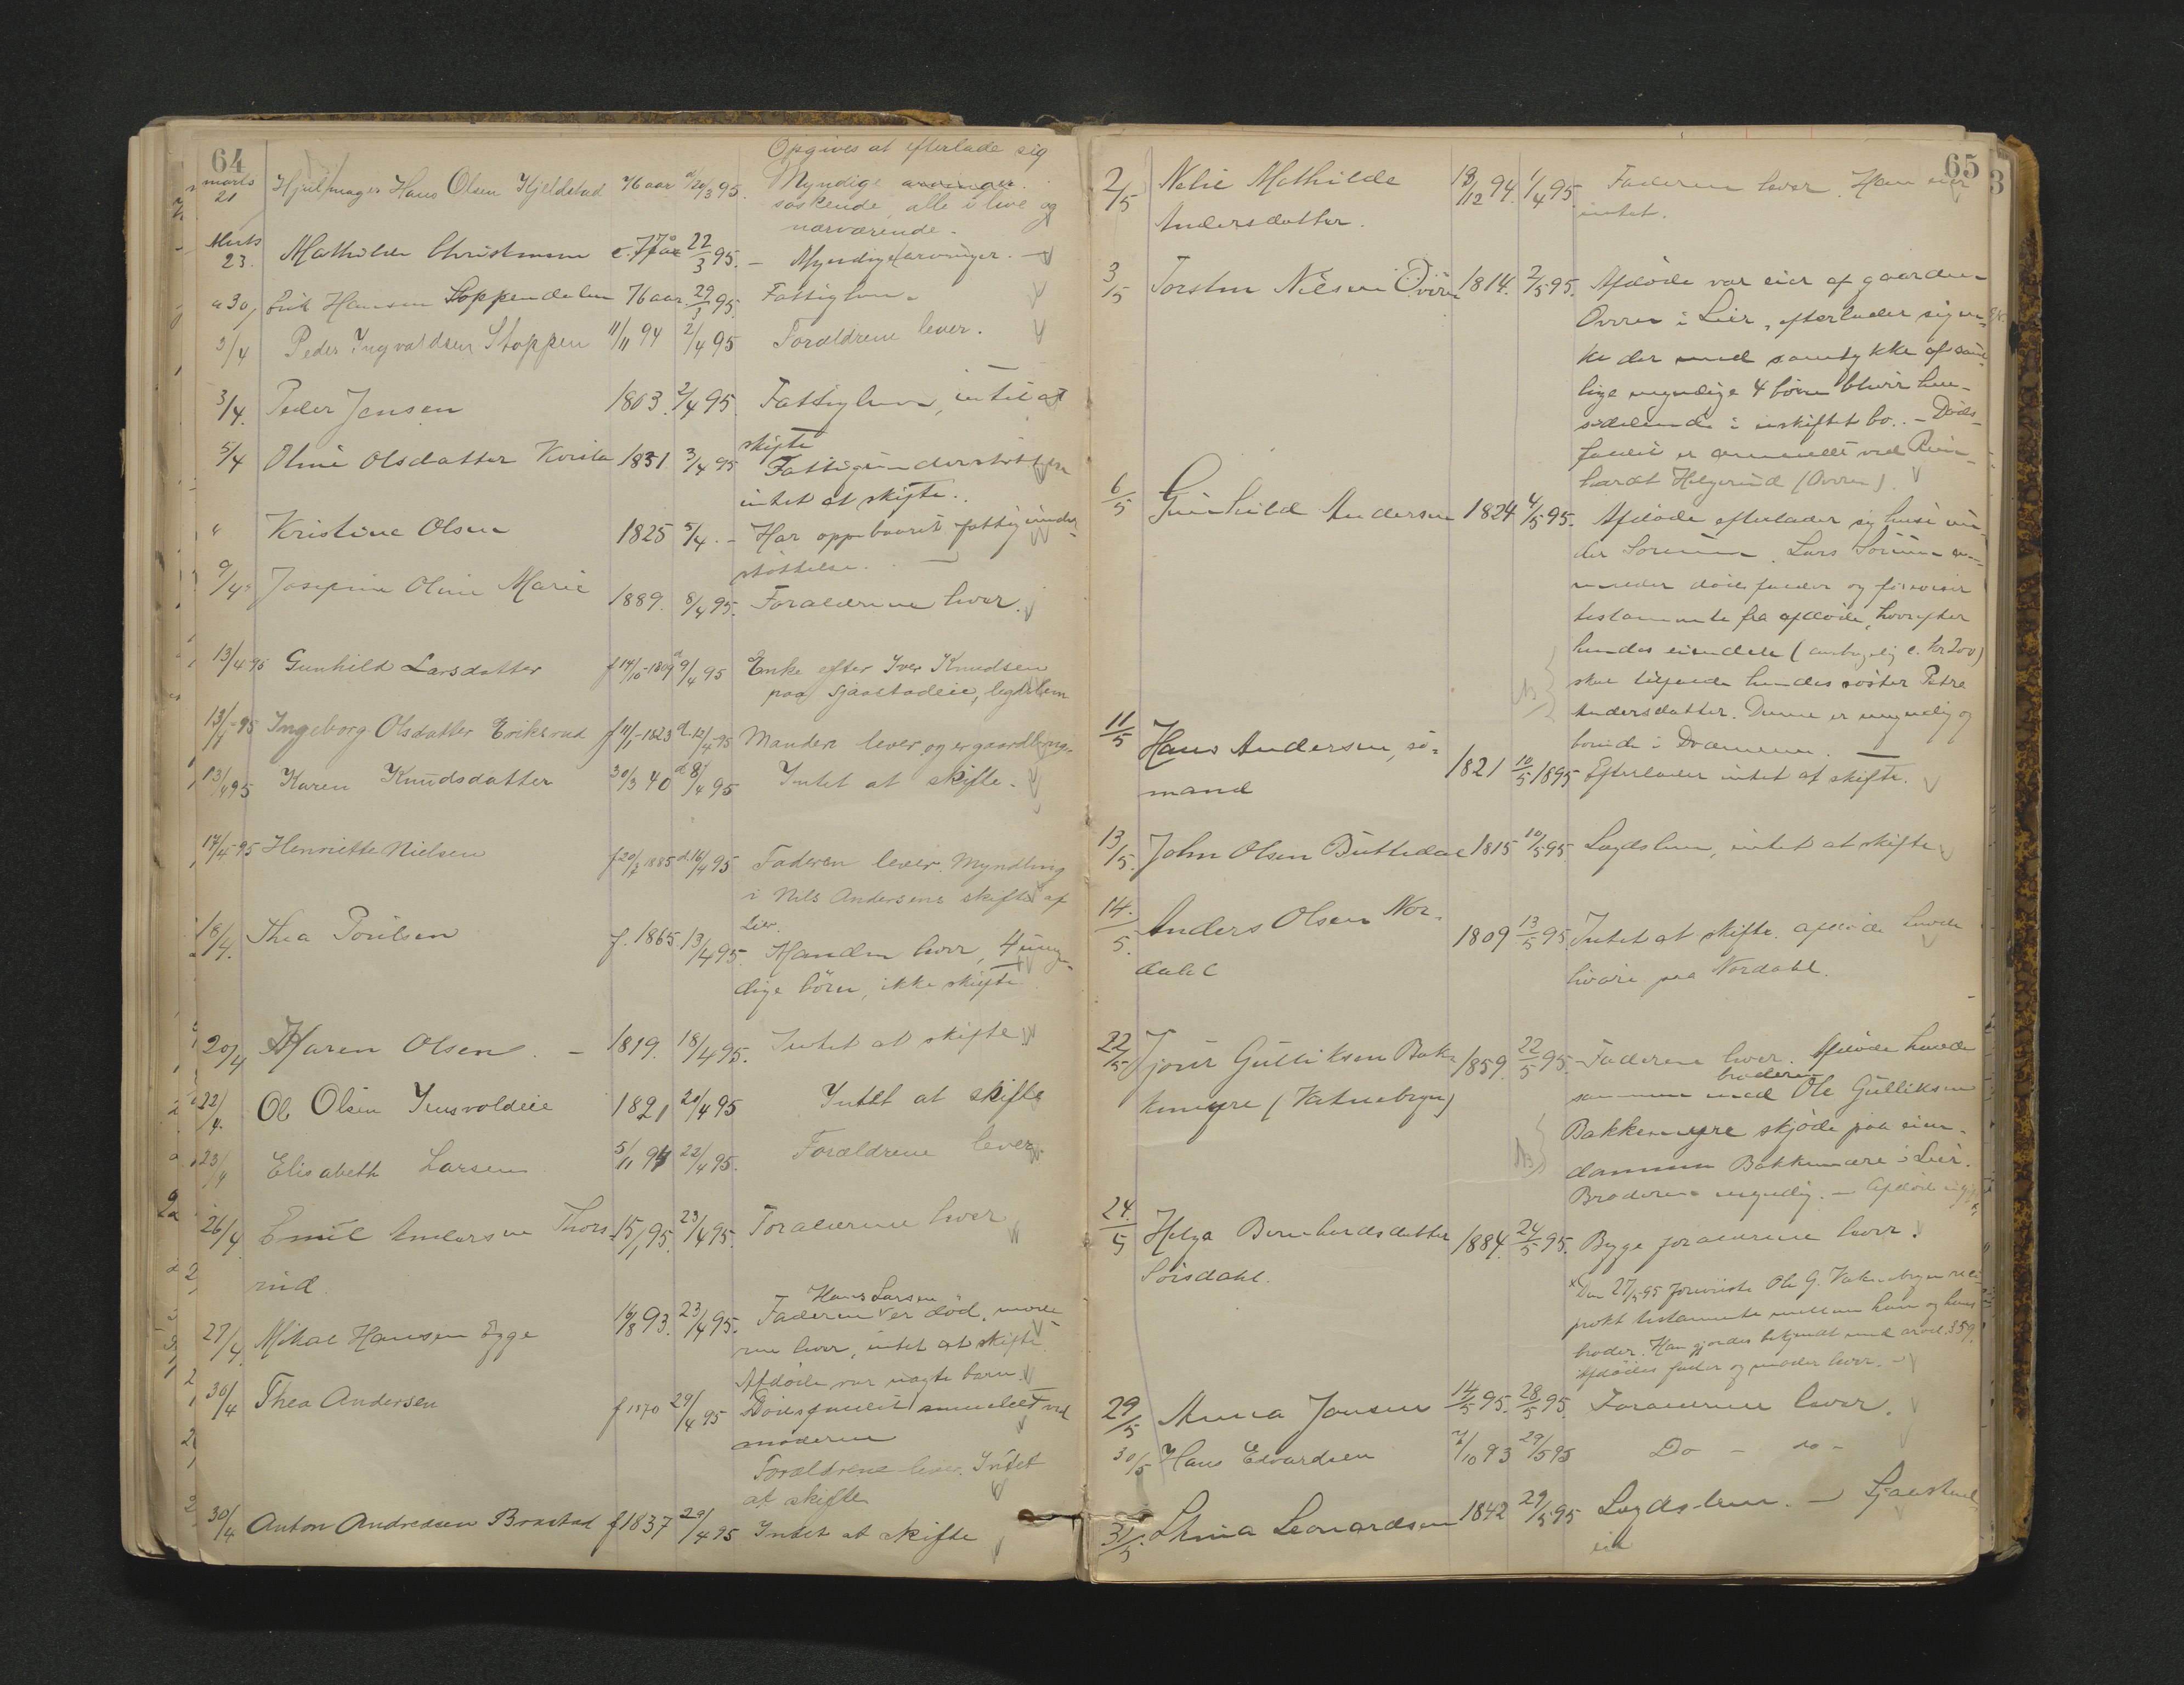 64
Opgives at efterlade sig
marts 21 Hjulmager Hans Olsen Kjeldstad 76 aar d 20/3 95. Myndige arvinger.
søskende, alle i live og
nærværende.
Marts 23. Mathilde Christensen 22/3 95. - Myndige arvinger. -
" 30, Erik Hansen Stoppendalen 76 aar 29/3 95. Fattiglem.
3/4 Peder Ingvaldsen Stoppen 11/11 94 2/4 95 Forældrene lever.
3/4. Peder Jensen 1803. 2/4 95. Fattiglem, intet at
skifte
5/4 Oline Olsdatter 1831 3/4 95 Fattigunderstøttet
intet at skifte.
" Kristine Olsen 1825 5/4. - Har oppebaaret fattigunder-
støttelse.
9/4. Josefine Oline Marie 1889. 8/4 95. Forældrene lever.
13/4 95 Gunhild Larsdatter f 14/10-1809 d 9/4 95 Enke efter Iver Knudsen
paa Sjaastadeie, lægdslem
13/4-95 Ingeborg Olsdatter Eriksrud f 11/1-1823 d 12/4-95 Manden lever, og er gaardbruger
13/4 95 Karen Knudsdatter 30/3 40 d 8/4 95 Intet at skifte.
17/4-95 Henriette Nielsen f 20/7 1885 d 16/4 95 Faderen lever. Myndling
i Nils Andersens skifte af
Lier.
18/4. Thea Poulsen f. 1865 13/4 95. Manden lever, 4 umyn-
dige børn, ikke skifte
20/4 Karen Olsen. - 1819. 18/4 95. Intet at skifte
22/4. Ole Olsen Jensvoldeie 1821 20/4 95 Intet at skifte
23/4 Elisabeth Larsen 5/11 94 22/4 95. Forældrene lever.
26/4 Emil Andersen Thors- 15/1 95. 23/4 95. Forældrene lever
rud.
Hans Larsen
27/4. Mikal Hansen Egge 16/8 93. 23/4 95. Faderen er død, mode-
ren lever, intet at skifte.
Afdøde var uægte barn.
30/4 Thea Andersen f 1870 29/4 95 Dødsfaldet anmeldt ved
moderen
Forældrene lever. Intet
at skifte
30/4 Anton Andreasen Brastad f 1837 29/4 95 Intet at skifte
65
2/5 Nelie Mathilde 18/12 94. 1/4 95. Faderen lever. Han eier
Andersdatter. intet.
3/5 Torsten Nilsen Ovren 1814. 2/5 95. Afdøde var eier af gaarden
Ovren i Lier, efterlader sig en-
ke der med samtykke af sam-
lige myndige 4 børn blivir hen-
siddende i uskiftet bo. - Døds-
faldet er anmeldt ved Rein-
hardt Helgerud (Ovren).
6/5 Gunhild Andersen 1824 4/5 95. Afdøde efterlader sig huse un-
der Sørum. Lars Sørum an-
melder dødsfaldet og foreviser
testamente fra afdøde, hvorefter
hendes eiendele (antagelig c. kr 200)
skal tilfalde hendes søster Petra
Andersdatter. Denne er myndig og
boende i Drammen. -
11/5 Hans Andersen, sø- 1821 10/5 1895 Efterlader intet at skifte.
mand
13/5. John Olsen Buttedal 1815 10/5 95 Lægdslem, intet at skifte
14/5. Anders Olsen Nor- 1809 13/5 95. Intet at skifte. Afdøde havde
dahl livøre paa Nordahl.
22/5 Tjøstr Gulliksen Bak- 1859. 22/5 95. - Faderen lever. Afdøde havde
broderen
kemyre (Vatnebryn) sammen med Ole Gulliksen
Bakkemyre skjøde paa eien-
dommen Bakkemyre i Lier.
Broderen myndig. - Afdøde ugift x
24/5 Helga Bernhardsdatter 1884. 24/5 95. Begge forældrene lever.
Sørsdahl.
x Den 27/5 95 foreviste Ole G. Vatnebryn reci-
prokt testamente mellem ham og hans
broder. Han gjordes bekjendt med arvel. § 59.
Afdødes fader og moder lever. -
29/5 Anna Jonsen 14/5 95. 28/5 95. Forældrene lever.
30/5 Hans Edvardsen 7/10 93 29/5 95 Do - do -
31/5. Leonardsen 1842 29/5 95 Lægdslem. - Sjaastad-
eie